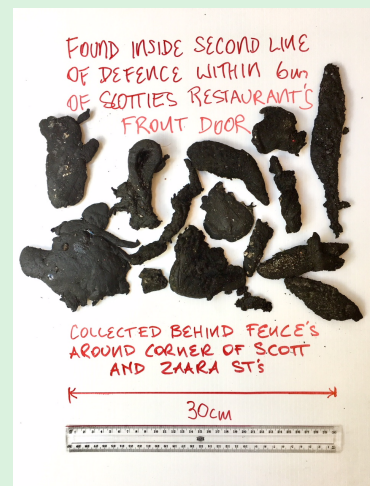 FOUND INSIDE SECOND LINE
OF DEFENCE WITHIN 6m
OF SCOTTIES RESTAURANT'S
FRONT DOOR
COLLECTED BEHIND FENCE'S
AROUND CORNER OF SCOTT
AND ZAARA ST'S
30cm